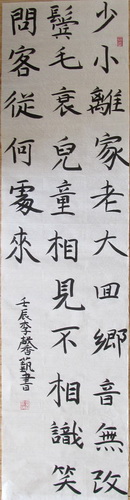 少小離家老大囬鄉音無改
鬢毛衰兒童相見不相識笑
問客從何處來
壬辰李馨藝書